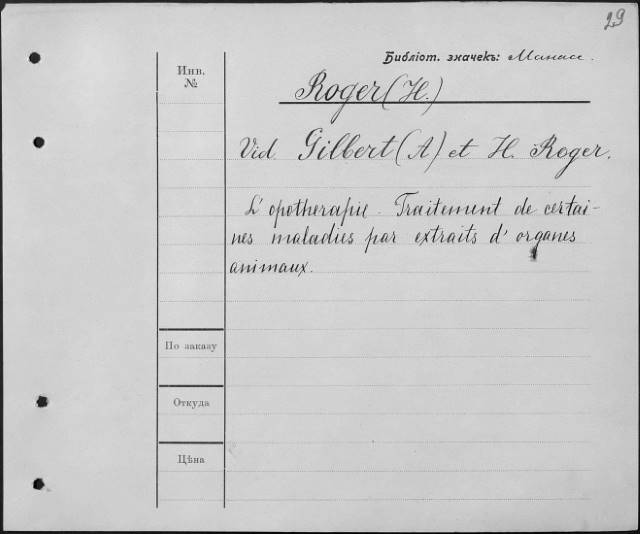 29
Библіот. значекъ: Манасс.
Инв.
№
Roger (H.)
Vid. Gilbert (A) et H. Roger.
L'opotherapie. Traitement de certai-
nes maladies par extraits d'organes
animaux.
По заказу
Откуда
Цѣна